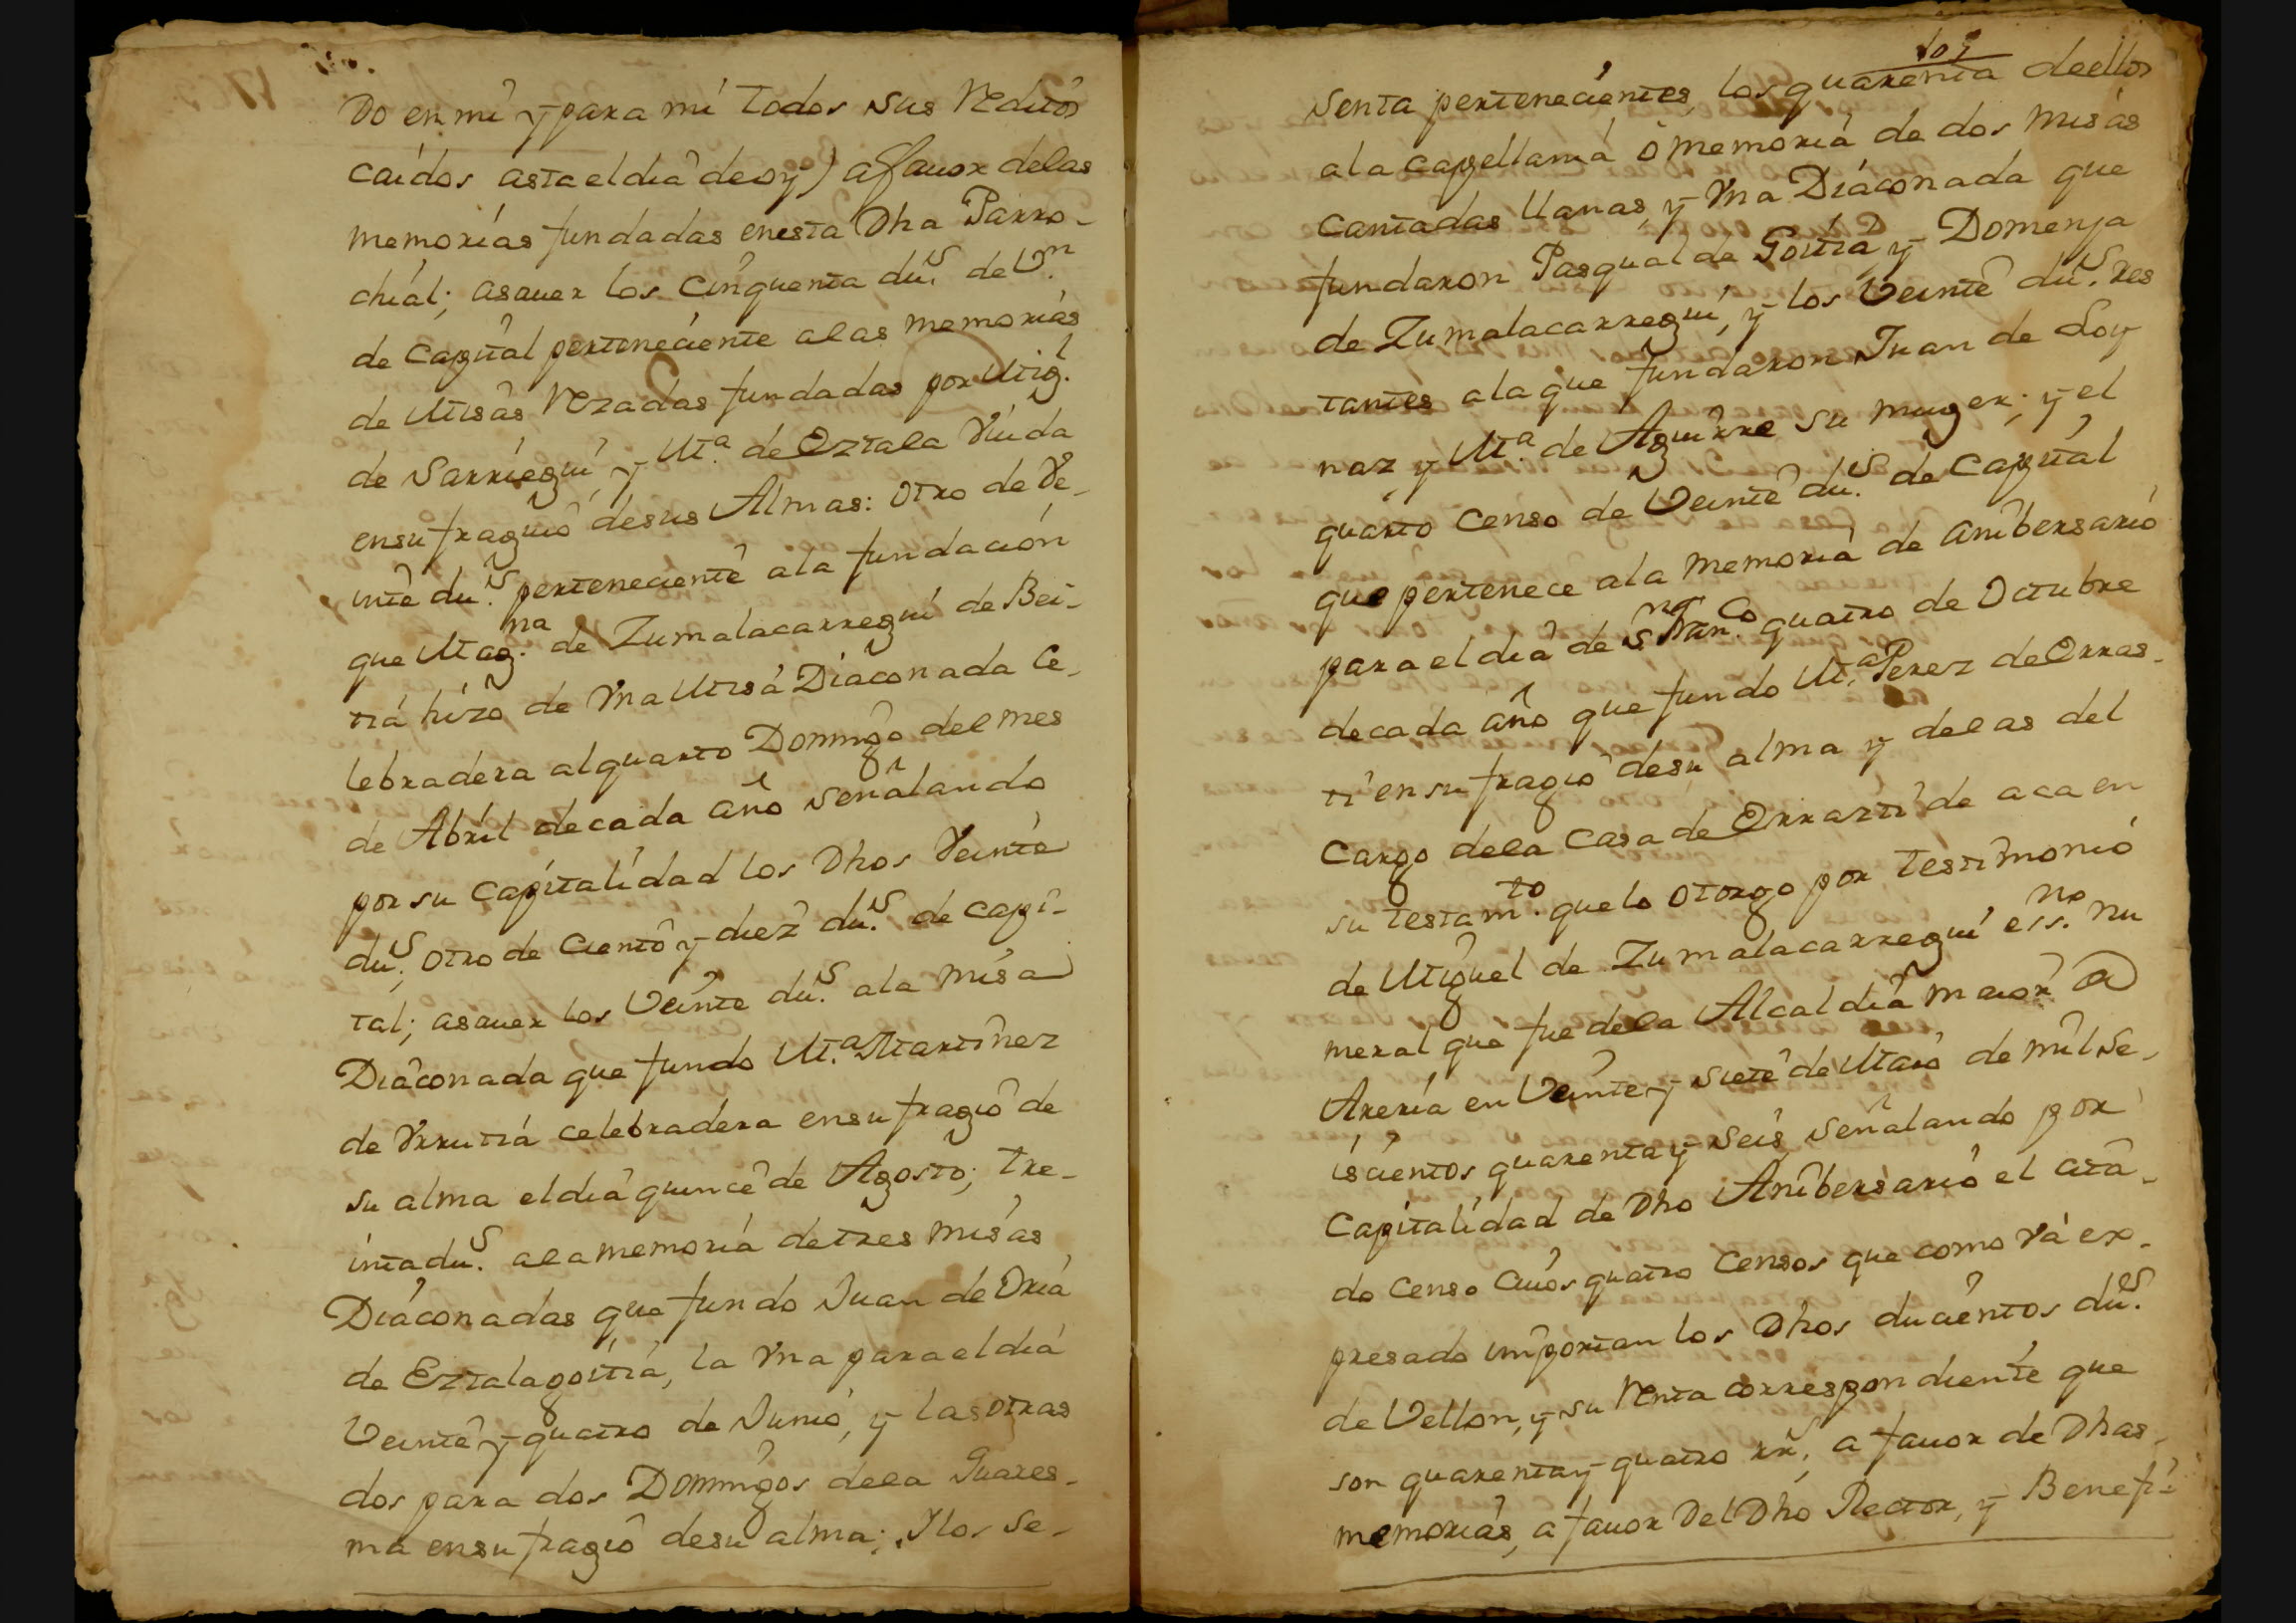 do en mi y para mi todos sus Reditos
caidos asta el dia de oy) a fauor de las
memorias fundadas en esta Dha Parro-
chial; asauer los cinquenta du.s de V.n
de capital perteneciente a las memorias
de Misas Rezadas fundadas por Mig.l
de Sarriegui y M.a de Oztala Viuda
en sufragio de sus Almas: otro de Ve-
inte du.s perteneciente a la fundacion
que Mag.na de Zumalacarregui de Bei-
tia hizo de Vna Misa Diaconada Ce-
lebradera al quarto Domingo del mes
de Abril de cada año señalando
por su capitalidad los Dhos Veinte
du.s; otro de ciento y diez du.s de capi-
tal; asauer los Veinte du.s a la misa
Diaconada que fundo M.a Martinez
de Vrrutia celebradera en sufragio de
su alma el dia quince de Agosto; tre-
inta du.s a la memoria de tres misas
Diaconadas que fundo Juan de Oria
de Eztalagoitia, la Vna para el dia
Veinte y quatro de Junio, y las otras
dos para dos Domingos de la Quares-
ma en sufragio de su alma; Y los se-
senta pertenecientes los quarenta de ellos
a la capellania ò memoria de dos misas
cantadas llanas y Vna Diaconada que
fundaron Pasqual de Goitia y Domenja
de Zumalacarregui, y los Veinte du.s res
tantes a la que fundaron Juan de Loy
naz y M.a de Aguirre su muger; y el
quarto censo de Veinte du.s de capital
que pertenece a la memoria de anibersario
para el dia de S.n Fran.co quatro de Octubre
de cada año que fundo M.a Perez de Orras-
ti en sufragio de su alma y de las del
cargo de la casa de Orrazti de aca en
su testam.to que lo otorgo por testimonio
de Miguel de Zumalacarregui ess.no nu
meral que fue de la Alcaldia maior @
Areria en Veinte y siete de Maio de mil se-
iscientos quarenta y seis señalando por
capitalidad de Dho Anibersario el cita-
do censo cuios quatro censos que como Vá ex-
presado importan los Dhos ducientos du.es
de Vellon, y su Renta correspondiente que
son quarenta y quatro rr.s, a fauor de Dhas
memorias, a fauor del Dho Rector, y Benefi-